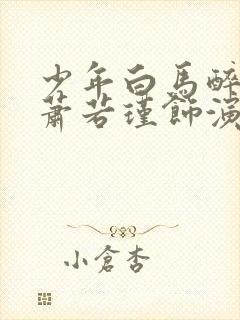 少年白馬醉
蕭若瑾飾演
小倉杏